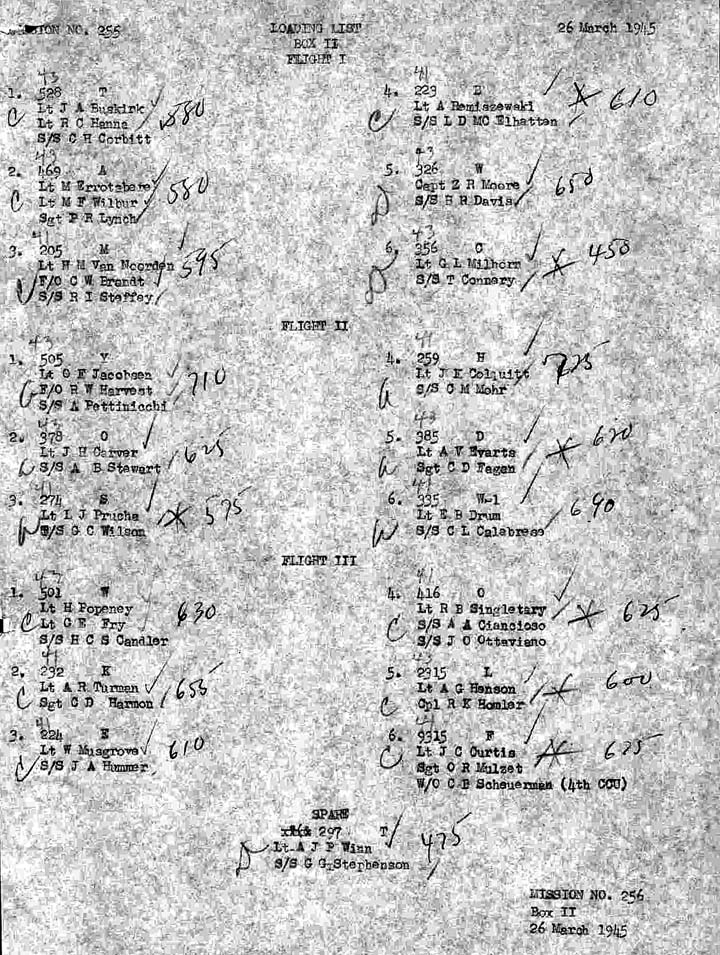 SSION NO. 255
LOADING LIST
26 March 1945
BOX II
FLIGHT I
43
1. 528 T
Lt J A Buskirk
C Lt R C Hanna 580
S/S C H Corbitt
43
2. 169 A
Lt M Errotabere
C Lt M F Wilbur 580
Sgt P R Lynch
41
3. 205 M
Lt H M Van Noorden 595
F/O C W Brandt
S/S R I Steffey
41
4. 223 B
Lt A Remiszewski 610
C S/S L D MC Elhatten
43
5. 326 W
Capt Z R Moore 650
D S/S H R Davis
43
6. 256 C
Lt G L Milhorn 450
D S/S T Connery
FLIGHT II
43
1. 505 Y
Lt G F Jacobsen
F/O R W Harvest 710
S/S A Pettinicchi
43
2. 978 O
Lt J H Carver 625
S/S A B Stewart
41
3. 274 S
Lt L J Prucha 575
S/S G C Wilson
41
4. 259 H
Lt J E Colquitt 725
S/S C M Mohr
43
5. 385 D
Lt A V Evarts 620
Sgt C D Fagan
41
6. 335 W-1
Lt E B Drum 690
S/S C L Calabrese
FLIGHT III
43
1. 501 W
Lt H Popeney
C Lt G E Fry 630
S/S H C S Candler
41
2. 292 K
Lt A R Turman 655
C Sgt C D Harmon
41
3. 224 E
Lt W Musgrove 610
C S/S J A Hummer
41
4. 416 O
Lt R B Singletary 625
C S/S A A Ciancioso
S/S J O Ottaviano
43
5. 2315 L
Lt A G Hanson 600
C Cpl R K Homler
41
6. 9315 F
C Lt J C Curtis 625
Sgt O R Mulzet
W/O C B Scheuerman (4th CCU)
SPARE
297 T
D Lt A J P Winn 475
S/S G G Stephenson
MISSION NO. 256
Box II
26 March 1945